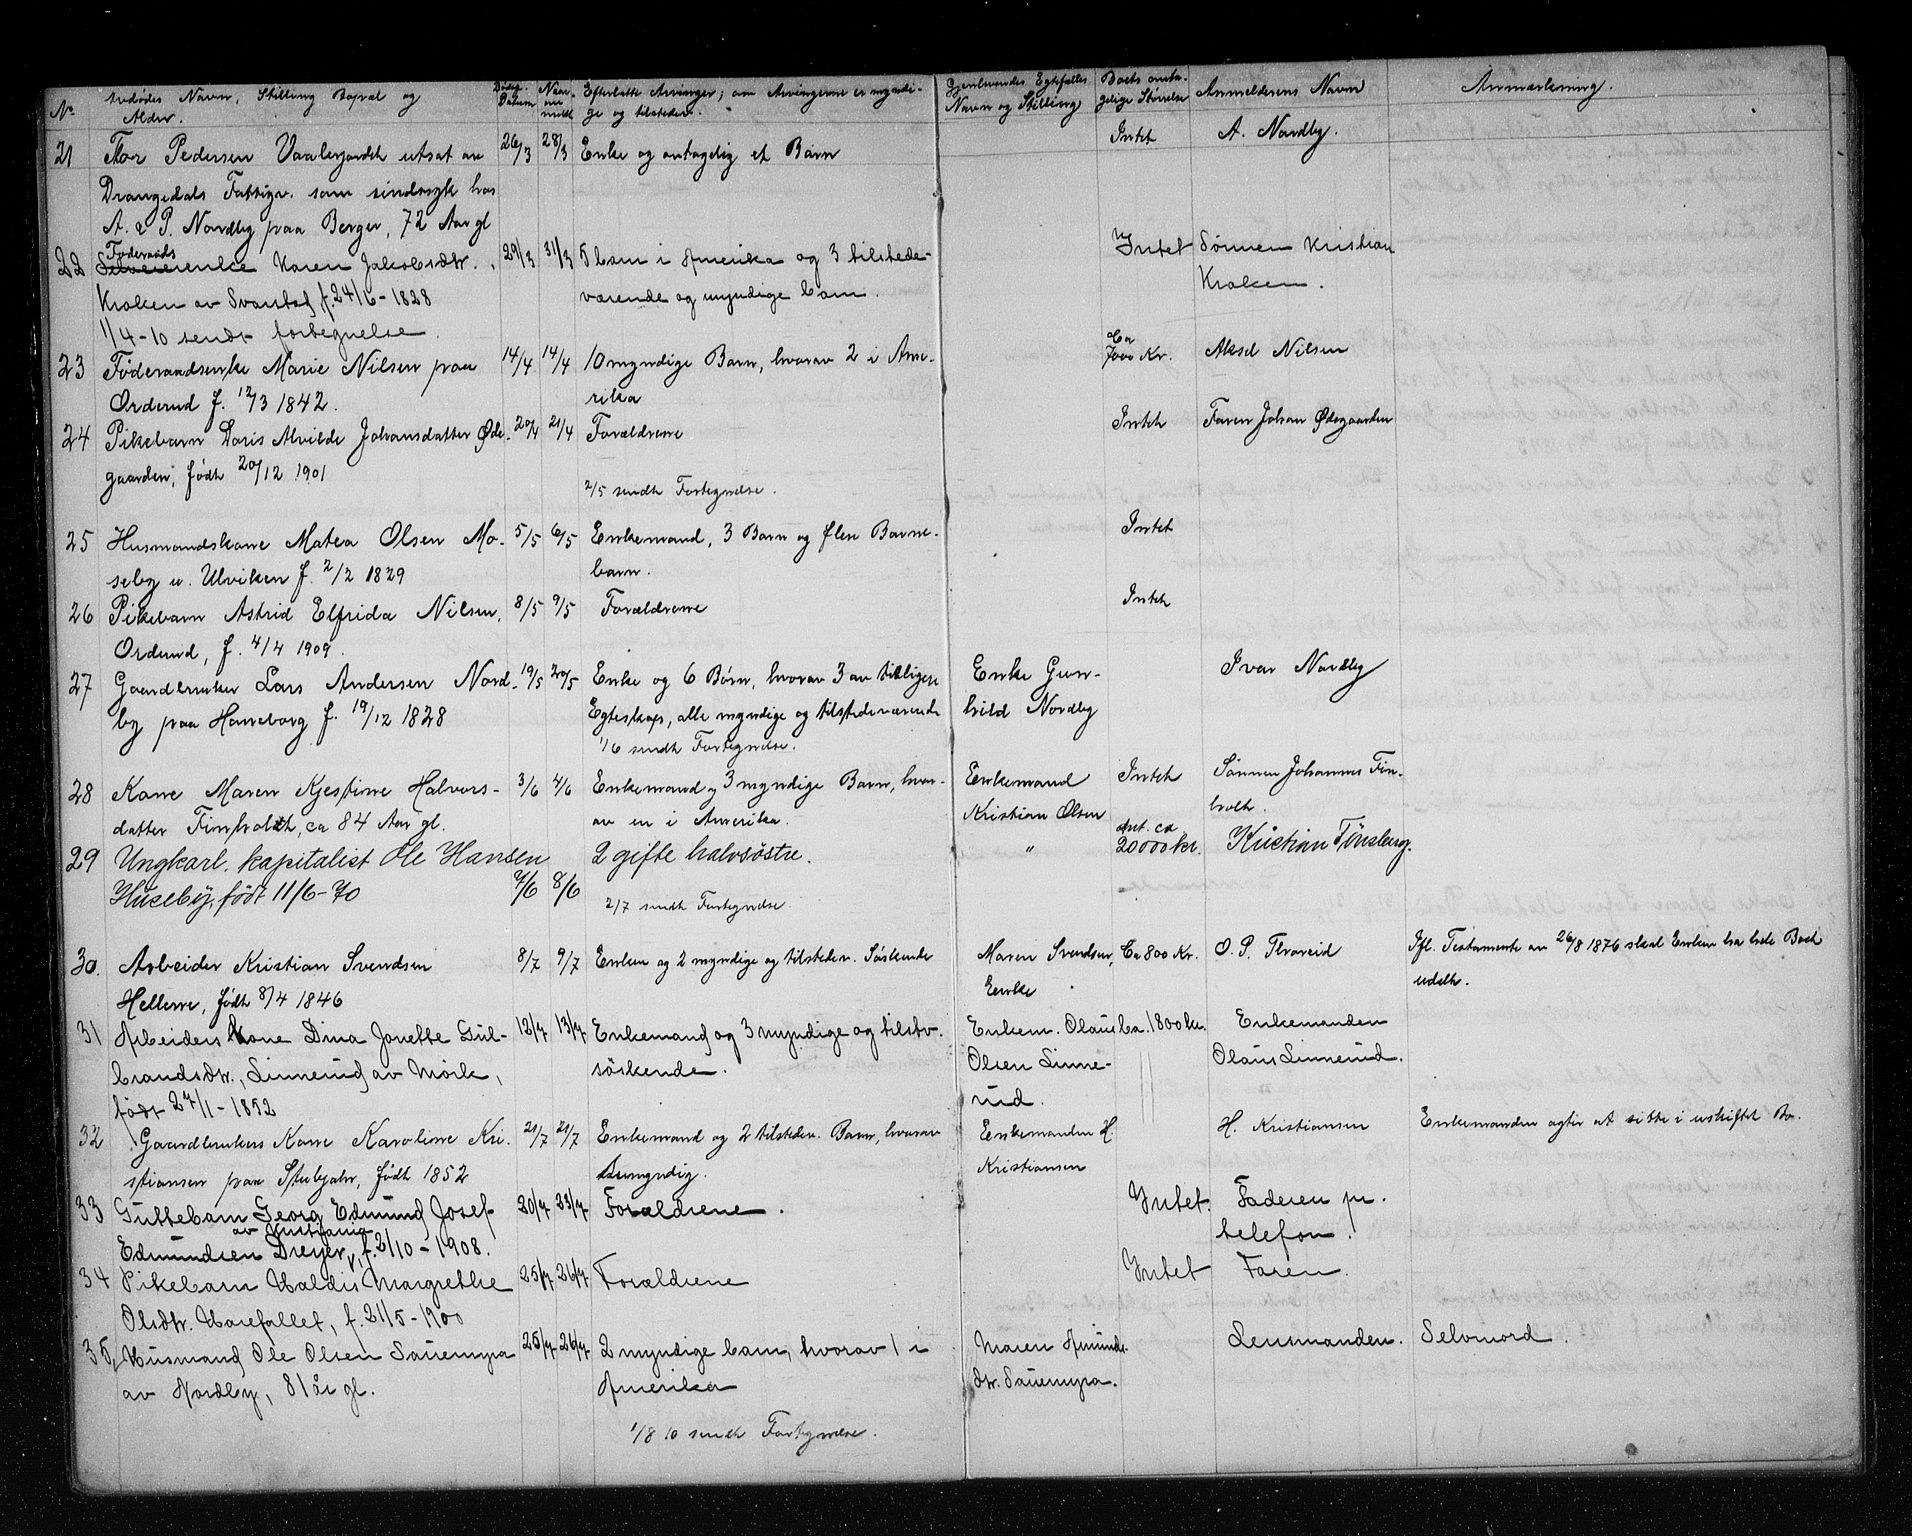 No
Avdødes Navn, Stilling Bopæl og
Alder.
Dødsf. Datum
Naar anmeldt
Efterlatte Arvinger; om Arvingerne er myndi-
ge og tilstede.
Gjenlevendes Egtefælles
Navn og Stilling
Boets anta-
gelige Størrelse
Anmelderens Navn
Anmærkning.
21 Thor Pedersen Vaalerjordet utsat av 26/3 28/3 Enke og antagelig et Barn Intet A. Nordby.
Drangedals Fattigv. som sindssyk hos
A. & P. Nordby paa Berger, 72 Aar gl
Føderaads
22 Selveierenke Karen Jakobsdtr. 29/3 31/3 5 barn i Amerika og 3 tilstede- Intet Sønnen Kristian
Kroken av Svarstad f. 24/6-1828 værende og myndige barn. Kroken.
1/4-10 sendt fortegnelse.
23 Føderaadsenke Marie Nilsen paa 14/4 14/4 10 myndige Barn, hvorav 2 i Ame- Ca 7000 Kr. Aksel Nilsen
Orderud f. 12/3 1842. rika
24 Pikebarn Doris Alvilde Johansdatter Øde- 20/4 21/4 Forældrene Intet Faren Johan Ødegaarden
gaarden, født 20/12 1901
2/5 sendt Fortegnelse.
25 Husmandskone Matea Olsen Mo- 5/5 6/5 Enkemand, 3 Barn og flere Barne- Intet
seby u. Ulviken f. 2/2 1829 barn.
26 Pikebarn Astrid Elfrida Nilsen, 8/5 9/5 Forældrene Intet
Orderud, f. 4/4 1909.
27 Gaardbruker Lars Andersen Nord- 19/5 20/5 Enke og 6 Børn, hvorav 3 av tidligere Enke Gun- Ivar Nordby
by paa Haneborg f. 19/12 1828 Egteskap, alle myndige og tilstedeværende hild Nordby
1/6 sendt Fortegnelse.
28 Kone Maren Kjestine Halvors- 3/6 4/6 Enkemand og 3 myndige Barn, hvor- Enkemand Intet Sønnen Johannes Fin-
datter Finholdt, ca 84 Aar gl. av en i Amerika. Kristian Olsen holt.
29 Ungkarl. kapitalist Ole Hansen 2 gifte halvsøstre. " Ant. ca 20000 kr. Kristian Tönsberg.
Huseby, født 11/6-70 7/6 8/6
2/7 sendt Fortegnelse
30. Arbeider Kristian Svendsen 8/7 9/7 Enken og 2 myndige og tilstedev. Søskende Maren Svendsen, Ca 800 Kr. O. P. Thoreid Ifl. Testamente av 26/8 1876 skal Enken ha hele Boet
Hellerne, født 8/4 1846 Enke udelt.
31 Arbeiders kone Dina Jonette Gul- 12/7 13/7 Enkemand og 3 myndige og tilstv. Enkem. Olaus Ca. 1800 kr. Enkemanden
brandsdtr., Linnerud av Mörk, söskende. Olsen Linne- Olaus Linnerud.
født 27/1-1852 rud.
32 Gaardbrukers Kone Karoline Kri- 21/7 21/7 Enkemand og 2 tilstedev. Barn, hvorav Enkemanden H. H. Kristiansen Enkemanden agter at sitte i uskiftet Bo.
stiansen paa Stubjahr, født 1852 1 umyndig. Kristiansen
33 Guttebarn Georg Edmund Josef 20/7 23/7 Forældrene. Intet. Faderen pr.
av Kristiania
Edmundsen Dreyer, f. 2/10-1908. telefon.
34 Pikebarn Valdis Margrethe 25/7 26/7 Forældrene Intet Faren.
Olsdtr. Harefallet, f. 21/5-1900
35, Husmand Ole Olsen Sauemyra 25/7 26/7 2 myndige barn, hvorav 1 i Maren Amunds- Lensmanden. Selvmord.
av Nordby, 81 år gl. Amerika dtr. Sauemyra.
1/8 10 sendt Fortegnelse.